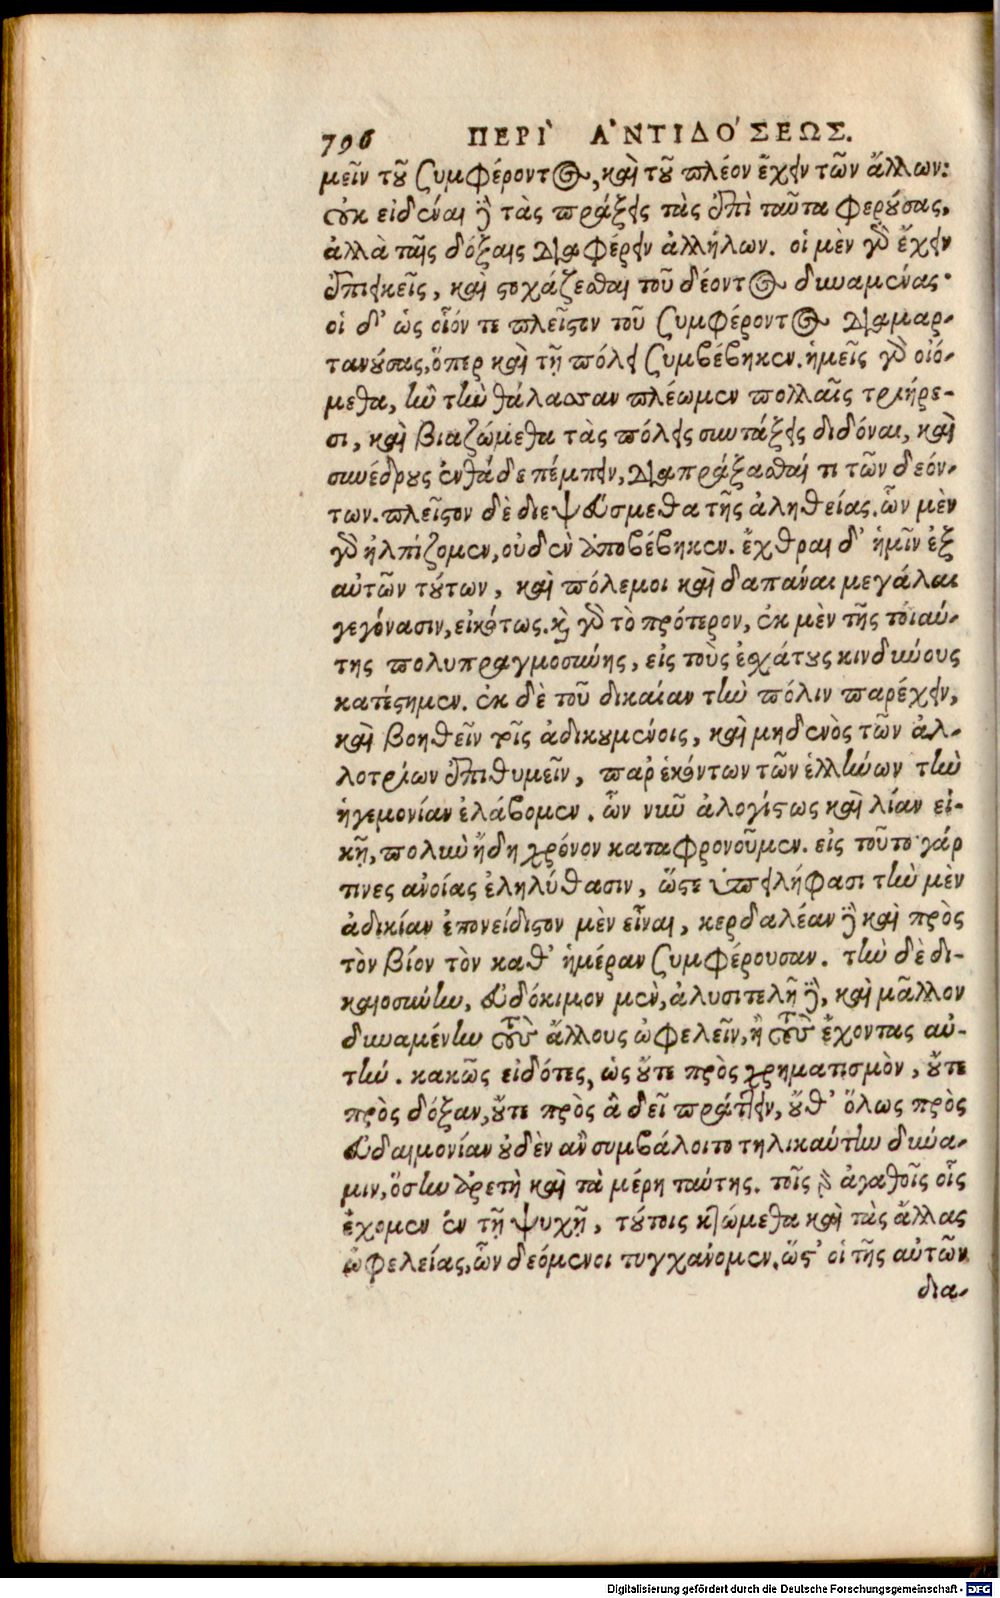 796 ΠΕΡῚ ἈΝΤΙΔΌΣΕΩΣ.
μεῖν τοῦ συμφέροντος, καὶ τοῦ πλέον ἔχειν τῶν ἄλλων:
οὐκ εἰδέναι δὲ τὰς πράξεις τὰς ἐπὶ ταῦτα φερούσας,
ἀλλὰ ταῖς δόξαις διαφέρειν ἀλλήλων. οἱ μὲν γὰρ ἔχειν
ἐπιεικεῖς, καὶ στοχάζεσθαι τοῦ δέοντος δυναμένας·
οἱ δ' ὡς οἷόν τε πλεῖστον τοῦ συμφέροντος διαμαρ-
τανούσας, ὅπερ καὶ τῇ πόλει συμβέβηκεν. ἡμεῖς γὰρ οἰό-
μεθα, ἢν τὴν θάλασσαν πλέωμεν πολλαῖς τριήρε-
σι, καὶ βιαζώμεθα τὰς πόλεις συντάξεις διδόναι, καὶ
συνέδρους ἐνθάδε πέμπειν, διαπράξασθαί τι τῶν δεόν-
των. πλεῖστον δὲ διεψεύσμεθα τῆς ἀληθείας. ὧν μὲν
γὰρ ἠλπίζομεν, οὐδὲν ἀποβέβηκεν. ἔχθραι δ' ἡμῖν ἐξ
αὐτῶν τούτων, καὶ πόλεμοι καὶ δαπάναι μεγάλαι
γεγόνασιν, εἰκότως. καὶ γὰρ τὸ πρότερον, ἐκ μὲν τῆς τοιαύ-
της πολυπραγμοσύνης, εἰς τοὺς ἐσχάτους κινδύνους
κατέστημεν. ἐκ δὲ τοῦ δικαίαν τὴν πόλιν παρέχειν,
καὶ βοηθεῖν τοῖς ἀδικουμένοις, καὶ μηδενὸς τῶν ἀλ-
λοτρίων ἐπιθυμεῖν, παρ' ἑκόντων τῶν ἑλλήνων τὴν
ἡγεμονίαν ἐλάβομεν. ὧν νῦν ἀλογίστως καὶ λίαν εἰ-
κῇ, πολὺν ἤδη χρόνον καταφρονοῦμεν. εἰς τοῦτο γάρ
τινες ἀνοίας ἐληλύθασιν, ὥστε ὑπειλήφασι τὴν μὲν
ἀδικίαν ἐπονείδιστον μὲν εἶναι, κερδαλέαν δὲ καὶ πρὸς
τὸν βίον τὸν καθ' ἡμέραν συμφέρουσαν. τὴν δὲ δι-
καιοσύνην, εὐδόκιμον μὲν, ἀλυσιτελῆ δὲ, καὶ μᾶλλον
δυναμένην τοὺς ἄλλους ὠφελεῖν, ἢ τοὺς ἔχοντας αὐ-
τήν. κακῶς εἰδότες, ὡς οὔτε πρὸς χρηματισμὸν, οὔτε
πρὸς δόξαν, οὔτε πρὸς ἃ δεῖ πράττειν, οὔθ' ὅλως πρὸς
εὐδαιμονίαν οὐδὲν ἂν συμβάλοιτο τηλικαύτην δύνα-
μιν, ὅσην ἀρετὴ καὶ τὰ μέρη ταύτης. τοῖς γὰρ ἀγαθοῖς οἷς
ἔχομεν ἐν τῇ ψυχῇ, τούτοις κτώμεθα καὶ τὰς ἄλλας
ὠφελείας, ὧν δεόμενοι τυγχάνομεν. ὥστ' οἱ τῆς αὐτῶν
δια-
Digitalisierung gefördert durch die Deutsche Forschungsgemeinschaft - DFG